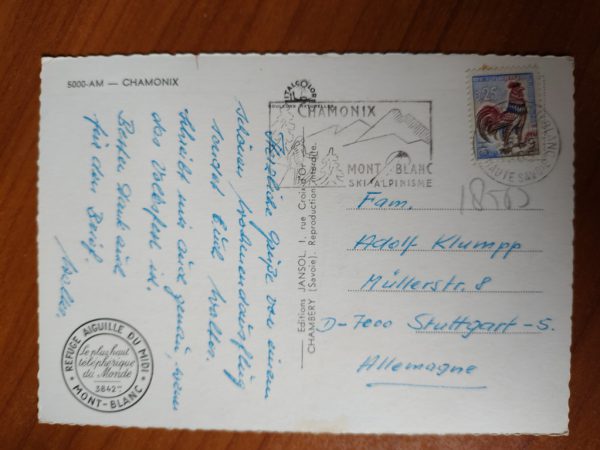 5000-AM — CHAMONIX
Herzliche Grüße von einem
schönen Wochenendausflug
sendet Eure Walter.
Schreibt mir aus genau, wenn
das Volksfest ist.
Besten Dank auch
für den Brief.
REFUGE AIGUILLE DU MIDI
Le plus haut
téléphérique
du Monde
3842 m
MONT-BLANC
ITALCOLOR
Editions JANSOL, 1, rue Croix-d'Or
CHAMBÉRY (Savoie). Reproduction interdite.
CHAMONIX
MONT BLANC
SKI-ALPINISME
0,25
HAUTE SAVOIE
1850
Fam.
Adolf Klumpp
Müllerstr. 8
D-7000 Stuttgart-S.
Allemagne